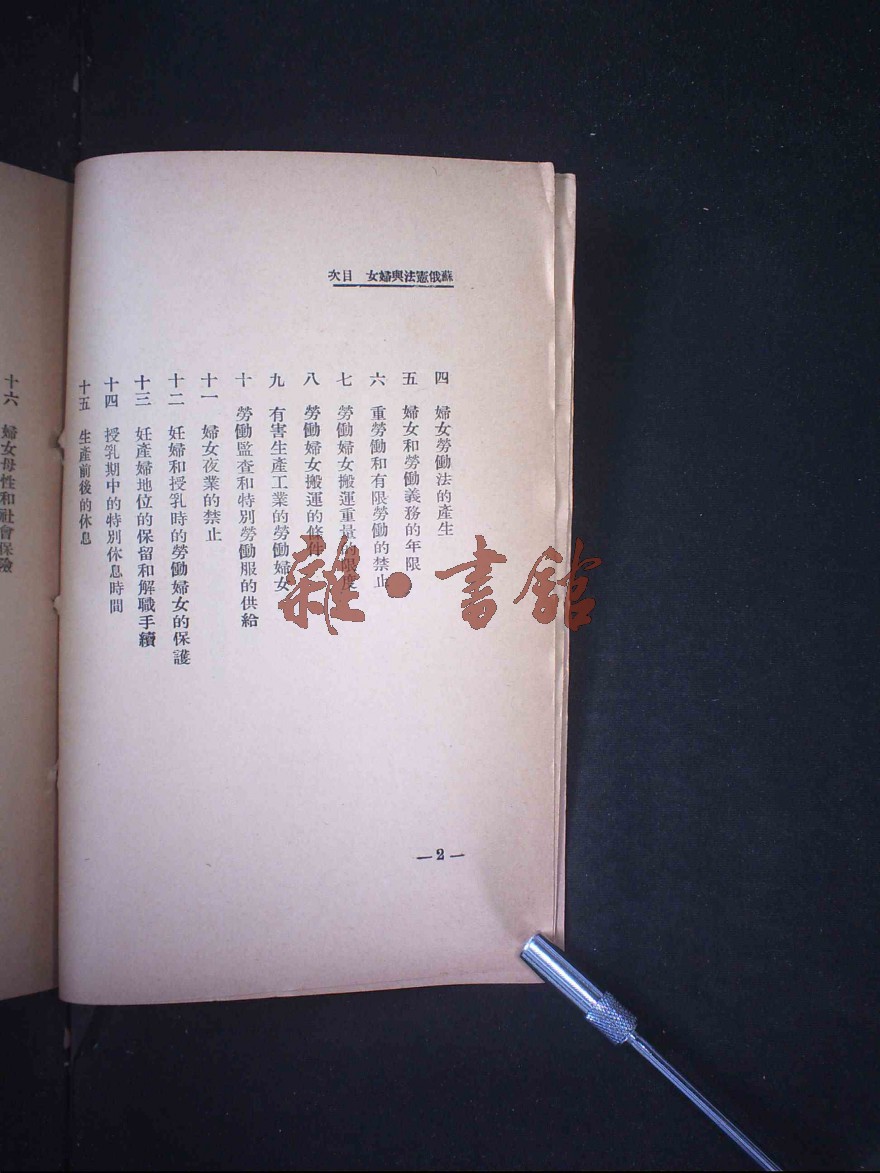 蘇俄憲法與婦女　目次
四　婦女勞働法的產生
五　婦女和勞働義務的年限
六　重勞働和有限勞働的禁止
七　勞働婦女搬運重量的限度
八　勞働婦女搬運的條件
九　有害生產工業的勞働婦女
十　勞働監查和特別勞働服的供給
十一　婦女夜業的禁止
十二　妊婦和授乳時的勞働婦女的保護
十三　妊產婦地位的保留和解職手續
十四　授乳期中的特別休息時間
十五　生產前後的休息
十六　婦女母性和社會保險
—2—
雜·書館